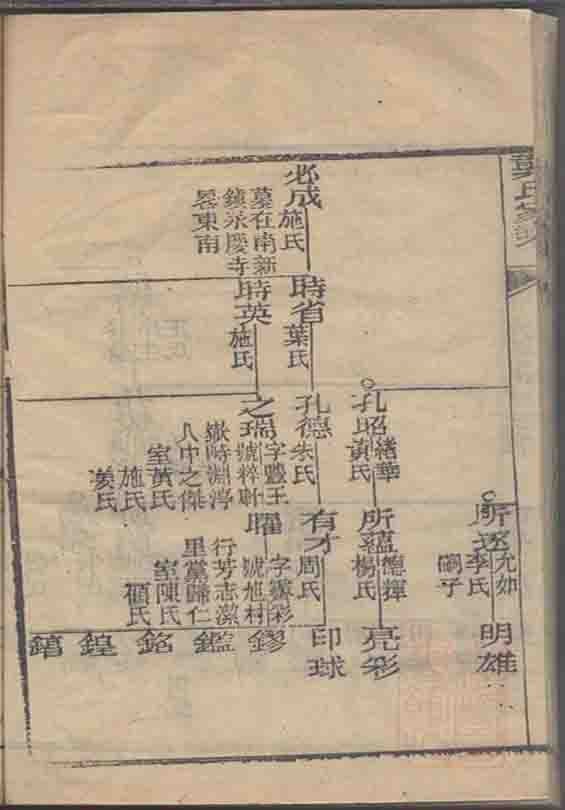 必成
施氏
墓在南新
鎮永慶寺
畧東南
時省
葉氏
時英
施氏
孔昭
緒華
黃氏
孔德
朱氏
之瑞
字豐王
號粹
嶽峙淵渟
人中之傑
室黃氏
施氏
姜氏
所
允如
李氏
嗣子
所蘊
揮
楊氏
有才
周氏
曜
字霽彩
號旭村
行芳志潔
里黨歸仁
室陳氏
顧氏
明雄
亮彩
印球
鏐
鑑
銘
鍠